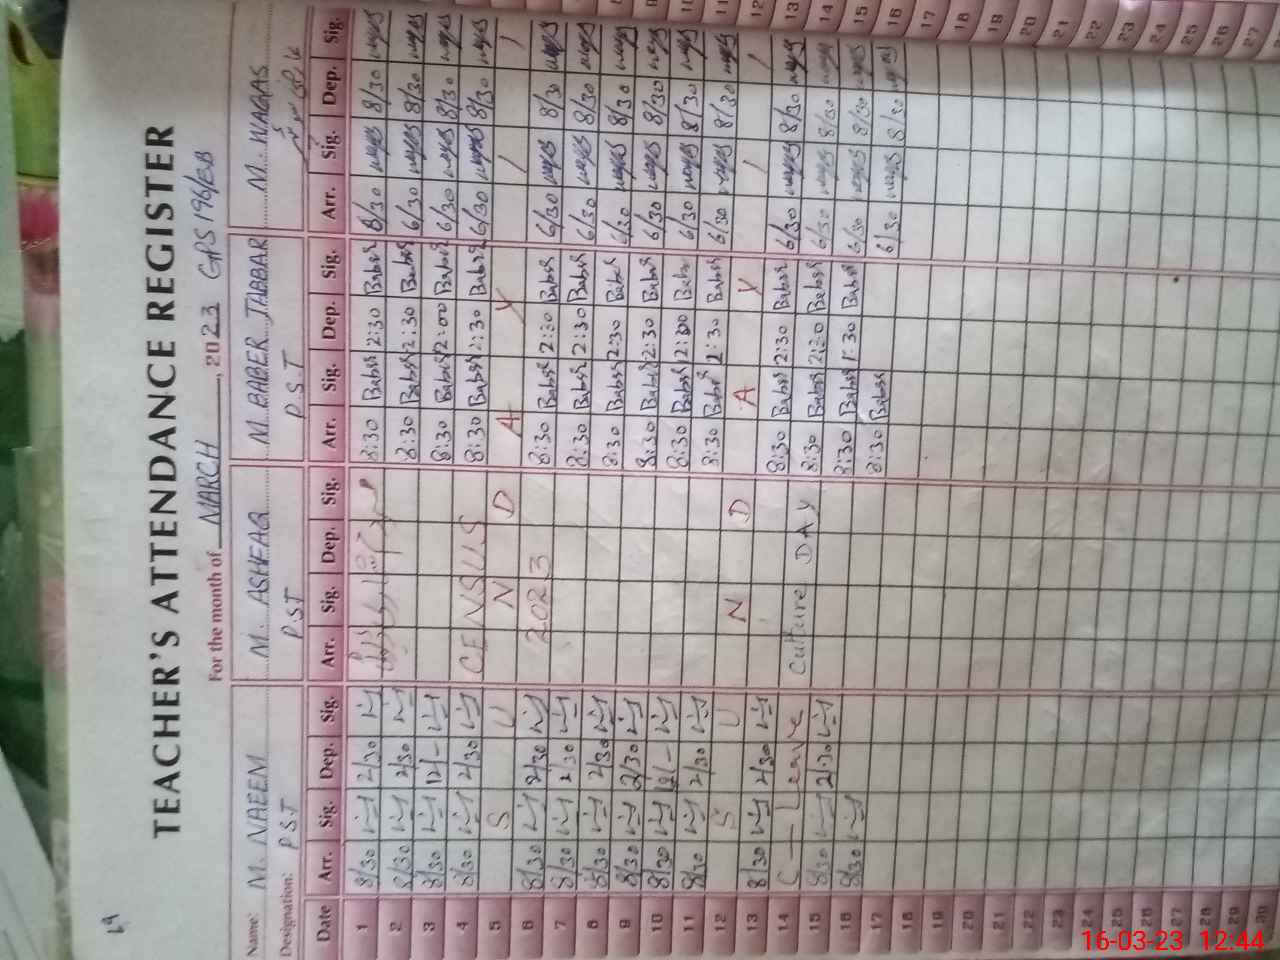 TEACHER'S ATTENDANCE REGISTER
For the month of MARCH, 2023 GPS 196/EB
Name: M. NAEEM M. ASHFAQ M. BABER JABBAR M. WAQAS
Designation: PST PST P.S.T
Date Arr. Sig. Dep. Sig. Arr. Sig. Dep. Sig. Arr. Sig. Dep. Sig. Arr. Sig. Dep. Sig.
1 8/30 2/30 8:30 Baber 2:30 Baber 6/30 waqas 8/30 waqas
2 8/30 2/30 8:30 Baber 2:30 Baber 6/30 waqas 8/30 waqas
3 8/30 12/- 8:30 Baber 12:00 Baber 6/30 waqas 8/30 waqas
4 8/30 2/30 CENSUS 8:30 Baber 2:30 Baber 6/30 waqas 8/30 waqas
5 S U N D A Y / /
6 8/30 2/30 2023 8:30 Baber 2:30 Baber 6/30 waqas 8/30 waqas
7 8/30 2/30 8:30 Baber 2:30 Baber 6/30 waqas 8/30 waqas
8 8/30 2/30 8:30 Baber 2:30 Baber 6/30 waqas 8/30 waqas
9 8/30 2/30 8:30 Baber 2:30 Baber 6/30 waqas 8/30 waqas
10 8/30 12/- 8:30 Baber 12:00 Baber 6/30 waqas 8/30 waqas
11 8/30 2/30 8:30 Baber 2:30 Baber 6/30 waqas 8/30 waqas
12 S U N D A Y / /
13 8/30 2/30 8:30 Baber 2:30 Baber 6/30 waqas 8/30 waqas
14 C - Leave Culture DAY 8:30 Baber 2:30 Baber 6/30 waqas 8/30 waqas
15 8/30 2/30 8:30 Baber 1:30 Baber 6/30 waqas 8/30 waqas
16 8/30 8:30 Baber 6/30 waqas 8/30 waqas
17
18
19
20
21
22
23
24
25
26
27
28
29
30
16-03-23 12:44